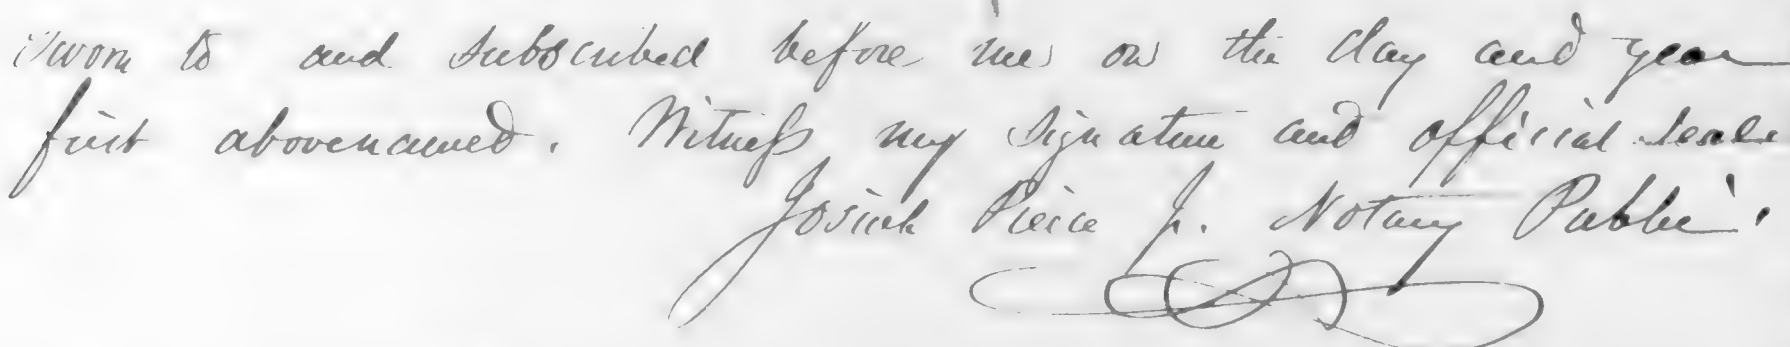 Sworn to and subscribed before me on the day and year
first abovenamed. Witness my signature and official seal
Josiah Pierce Jr. Notary Public.